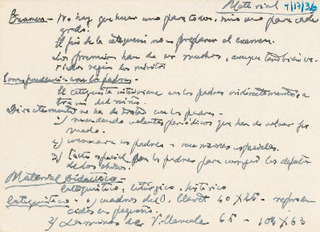 Material 4/17/36
Exámenes - No hay que hacer uno para todos, sino uno para cada
grado.
El fin de la catequesis no es preparar al examen.
Los premios han de ser muchos, aunque también va-
riados según los méritos
Correspondencia con los padres.
El catequista interviene con los padres ordinariamente a
través del niño.
Directamente no ha de tratar con los padres.
1) mandando volantes periódicos que han de volver fir-
mado.
2) a los padres a reuniones especiales.
3) especial con los padres para corregir los defectos
de los chicos.
Material didáctico -
Catequístico, litúrgico, histórico
Catequístico - 1) cuadros de D. Lloret 40 x 25 - reprodu-
cidos en pequeño.
2) Láminas de Vilamala 65 - 109 x 63